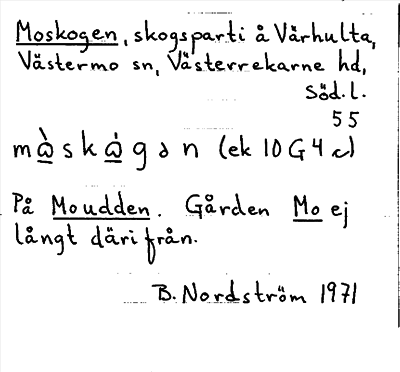 Moskogen, skogsparti å Vårhulta,
Västermo sn, Västerrekarne hd,
Söd.l.
55
mὼskω̇gən (ek 10 G 4 c)
På Moudden. Gården Mo ej
långt därifrån.
B. Nordström 1971